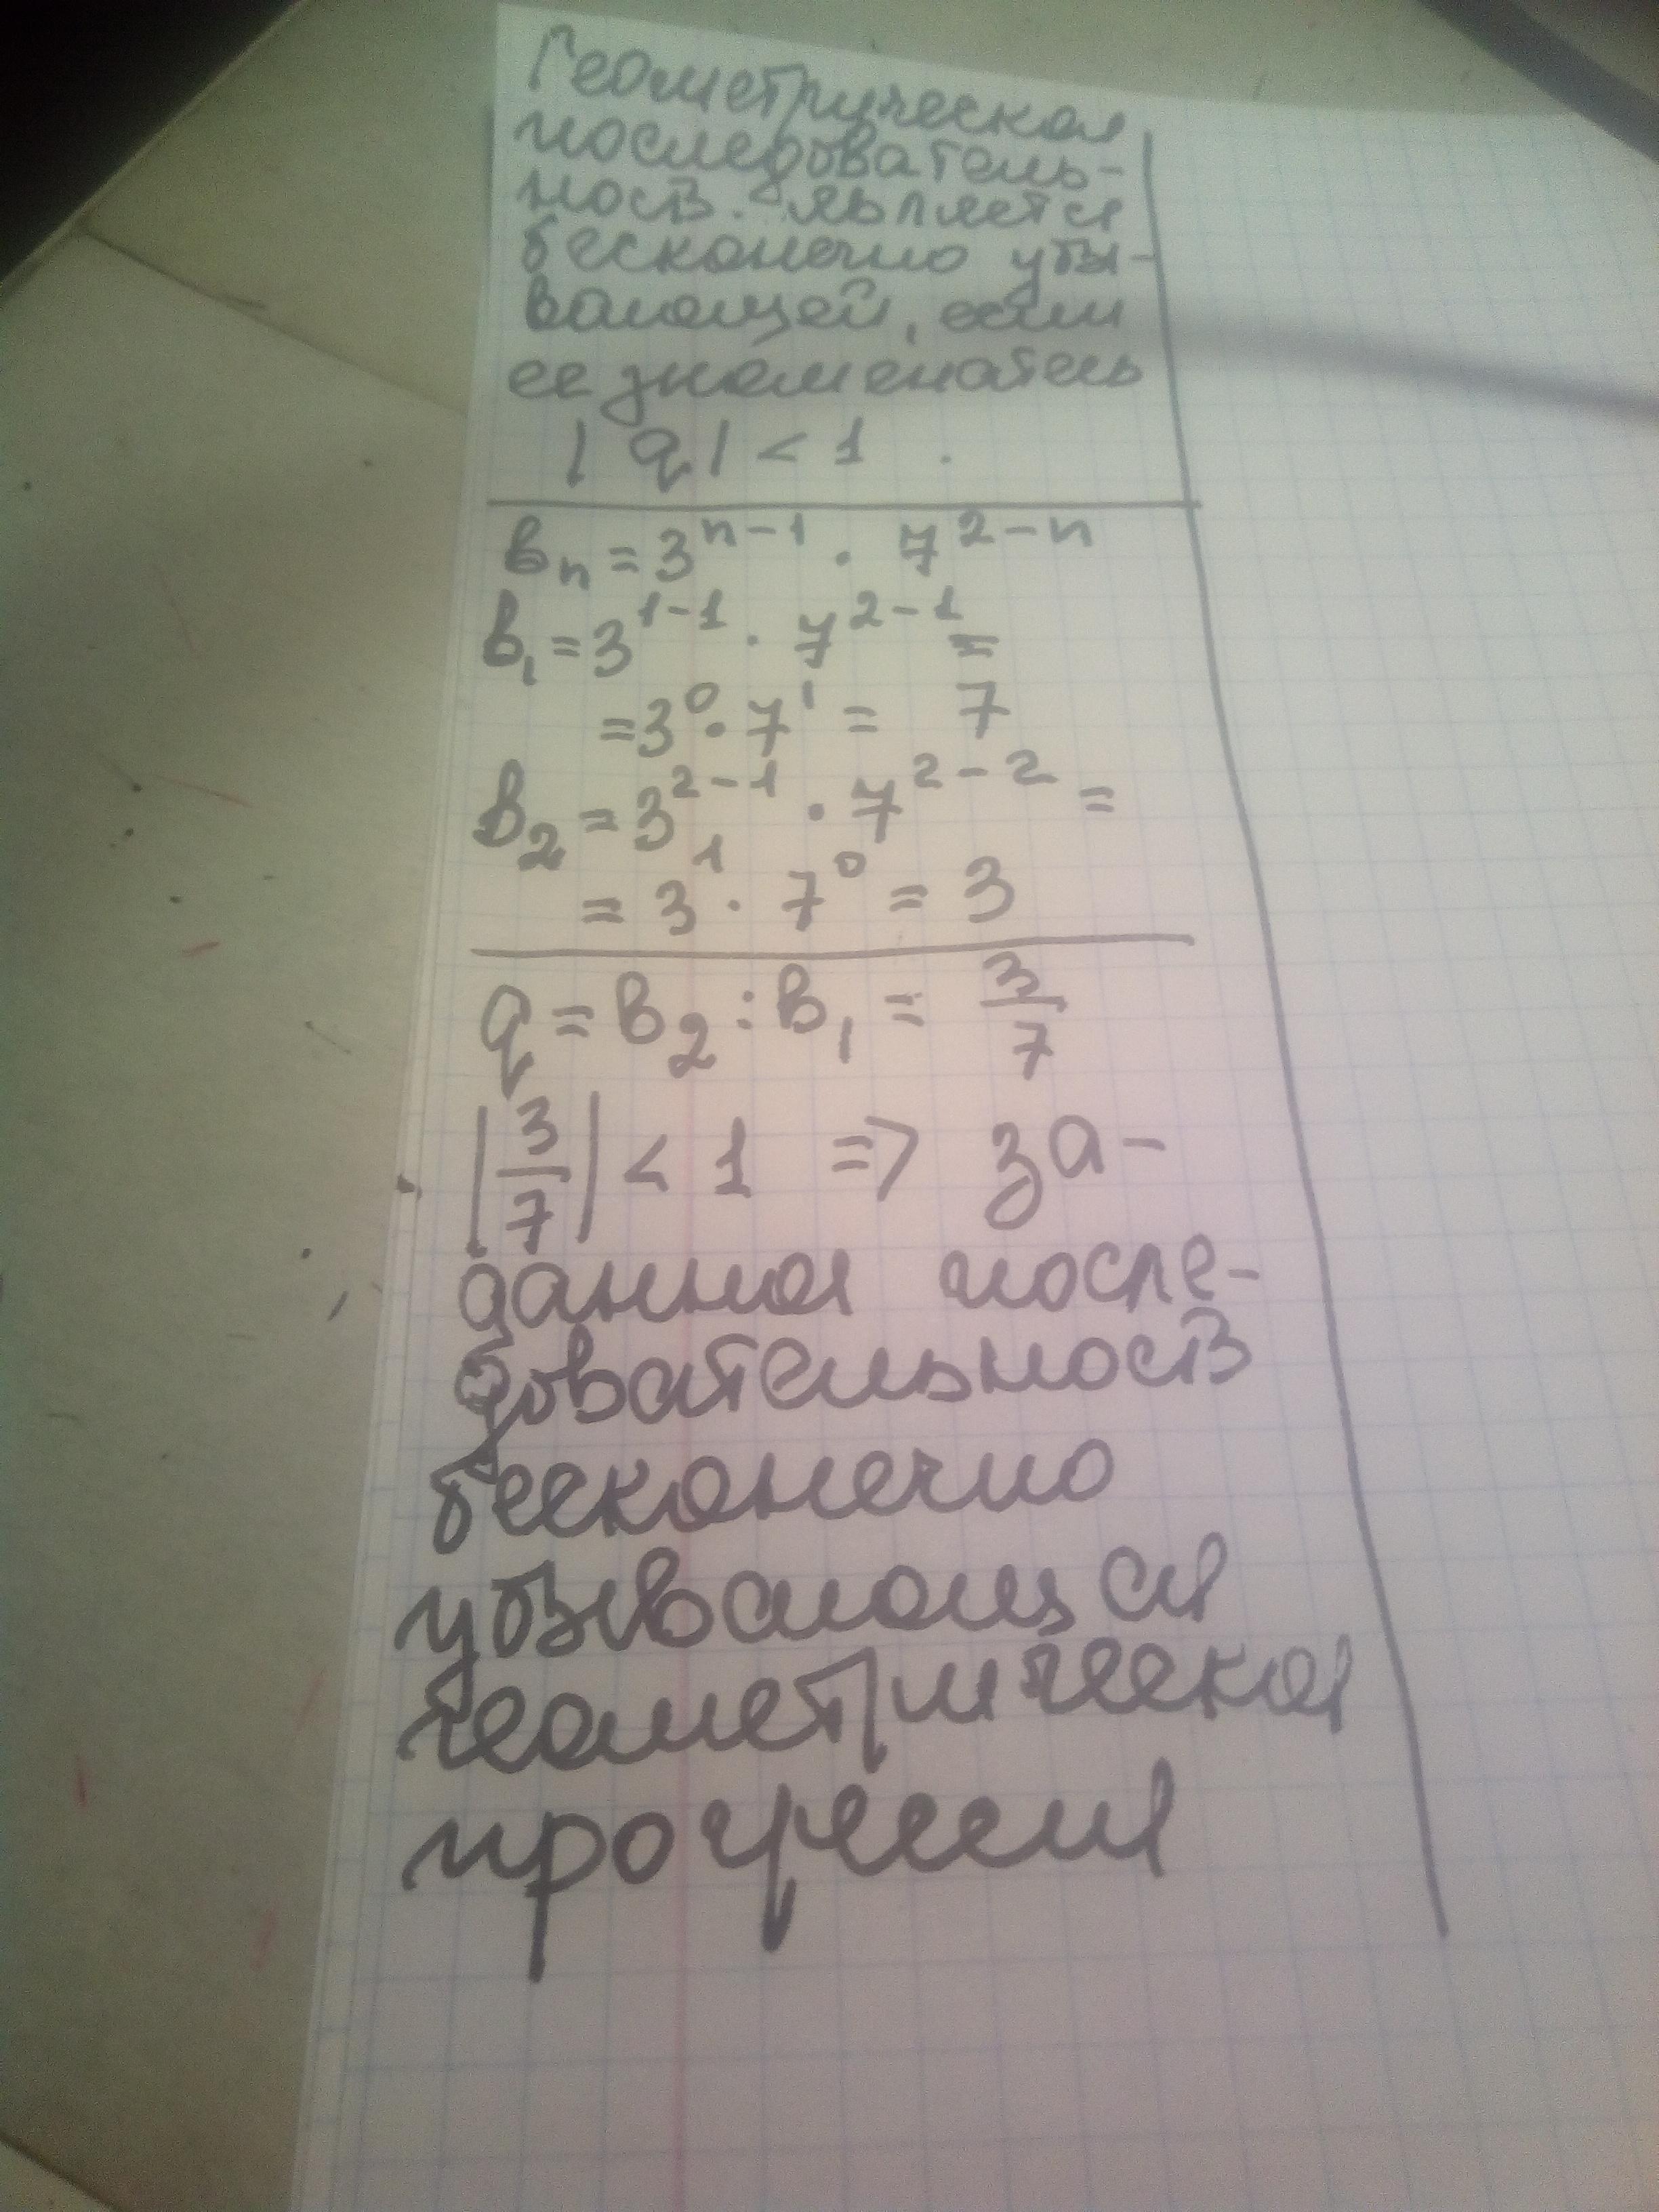 Геометрическая
последователь-
ность является
бесконечно убы-
вающей, если
ее знаменатель
|q| < 1.
bₙ = 3ⁿ⁻¹ · 7²⁻ⁿ
b₁ = 3¹⁻¹ · 7²⁻¹ =
= 3⁰ · 7¹ = 7
b₂ = 3²⁻¹ · 7²⁻² =
= 3¹ · 7⁰ = 3
q = b₂ : b₁ = 3/7
|3/7| < 1 => за-
данная после-
довательность
бесконечно
убывающая
геометрическая
прогрессия